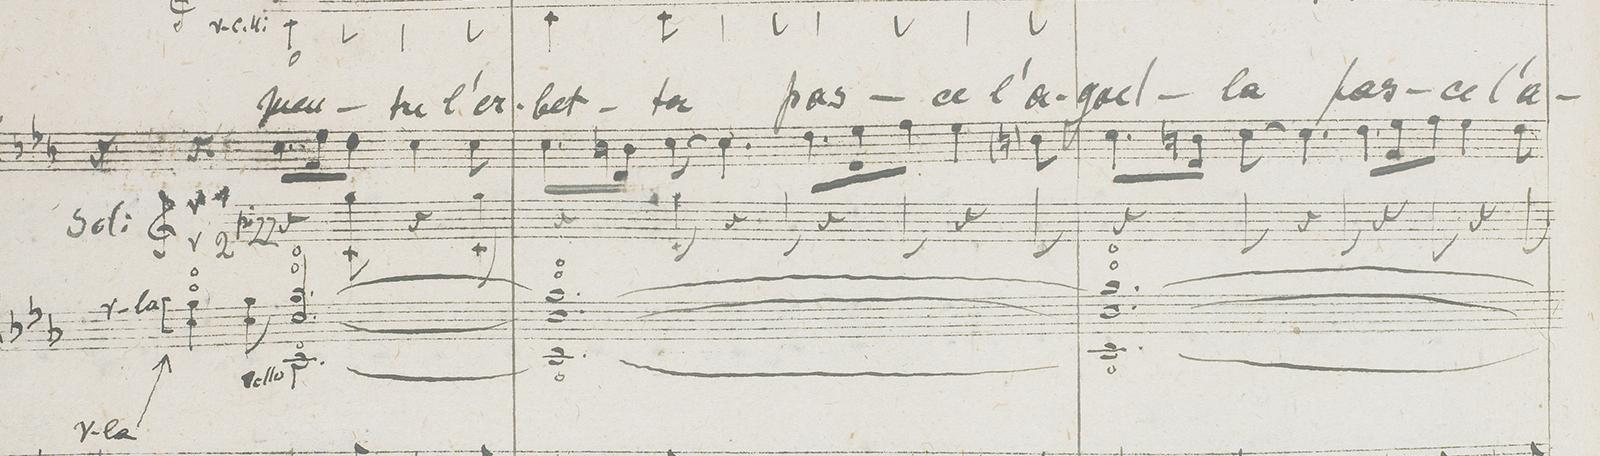 v-celli
tu l'er-bet-ta pas-ce l'a-gnel-la pas-ce l'a-
Soli V 2 pizz
v-la
cello
v-la